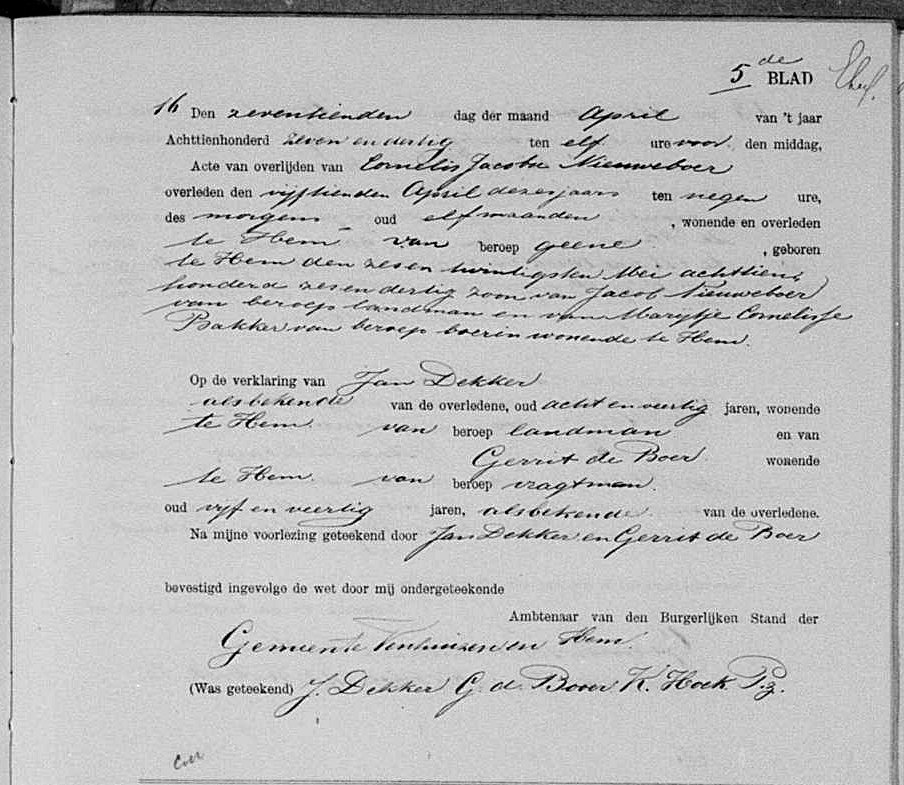 5de BLAD
16 Den zeventienden dag der maand April van 't jaar
Achttienhonderd zeven en dertig ten elf ure voor den middag,
Acte van overlijden van Cornelis Jacobsz Nieuweboer
overleden den vijftienden April dezes jaars ten negen ure,
des morgens oud elf maanden , wonende en overleden
te Hem van beroep geene , geboren
te Hem den zesen twintigsten Mei achttien
honderd zes en dertig zoon van Jacob Nieuweboer
van beroep landman en van Marytje Cornelisse
Bakker van beroep boerin wonende te Hem.
Op de verklaring van Jan Dekker
als bekende van de overledene, oud acht en veertig jaren, wonende
te Hem. van beroep landman en van
Gerrit de Boer wonende
te Hem. van beroep vragtman.
oud vijf en veertig jaren, als bekende van de overledene.
Na mijne voorlezing geteekend door Jan Dekker en Gerrit de Boer
bevestigd ingevolge de wet door mij ondergeteekende
Ambtenaar van den Burgerlijken Stand der
Gemeente Venhuizen en Hem.
(Was geteekend) J. Dekker G. d. Boer K. Hoek Pz.